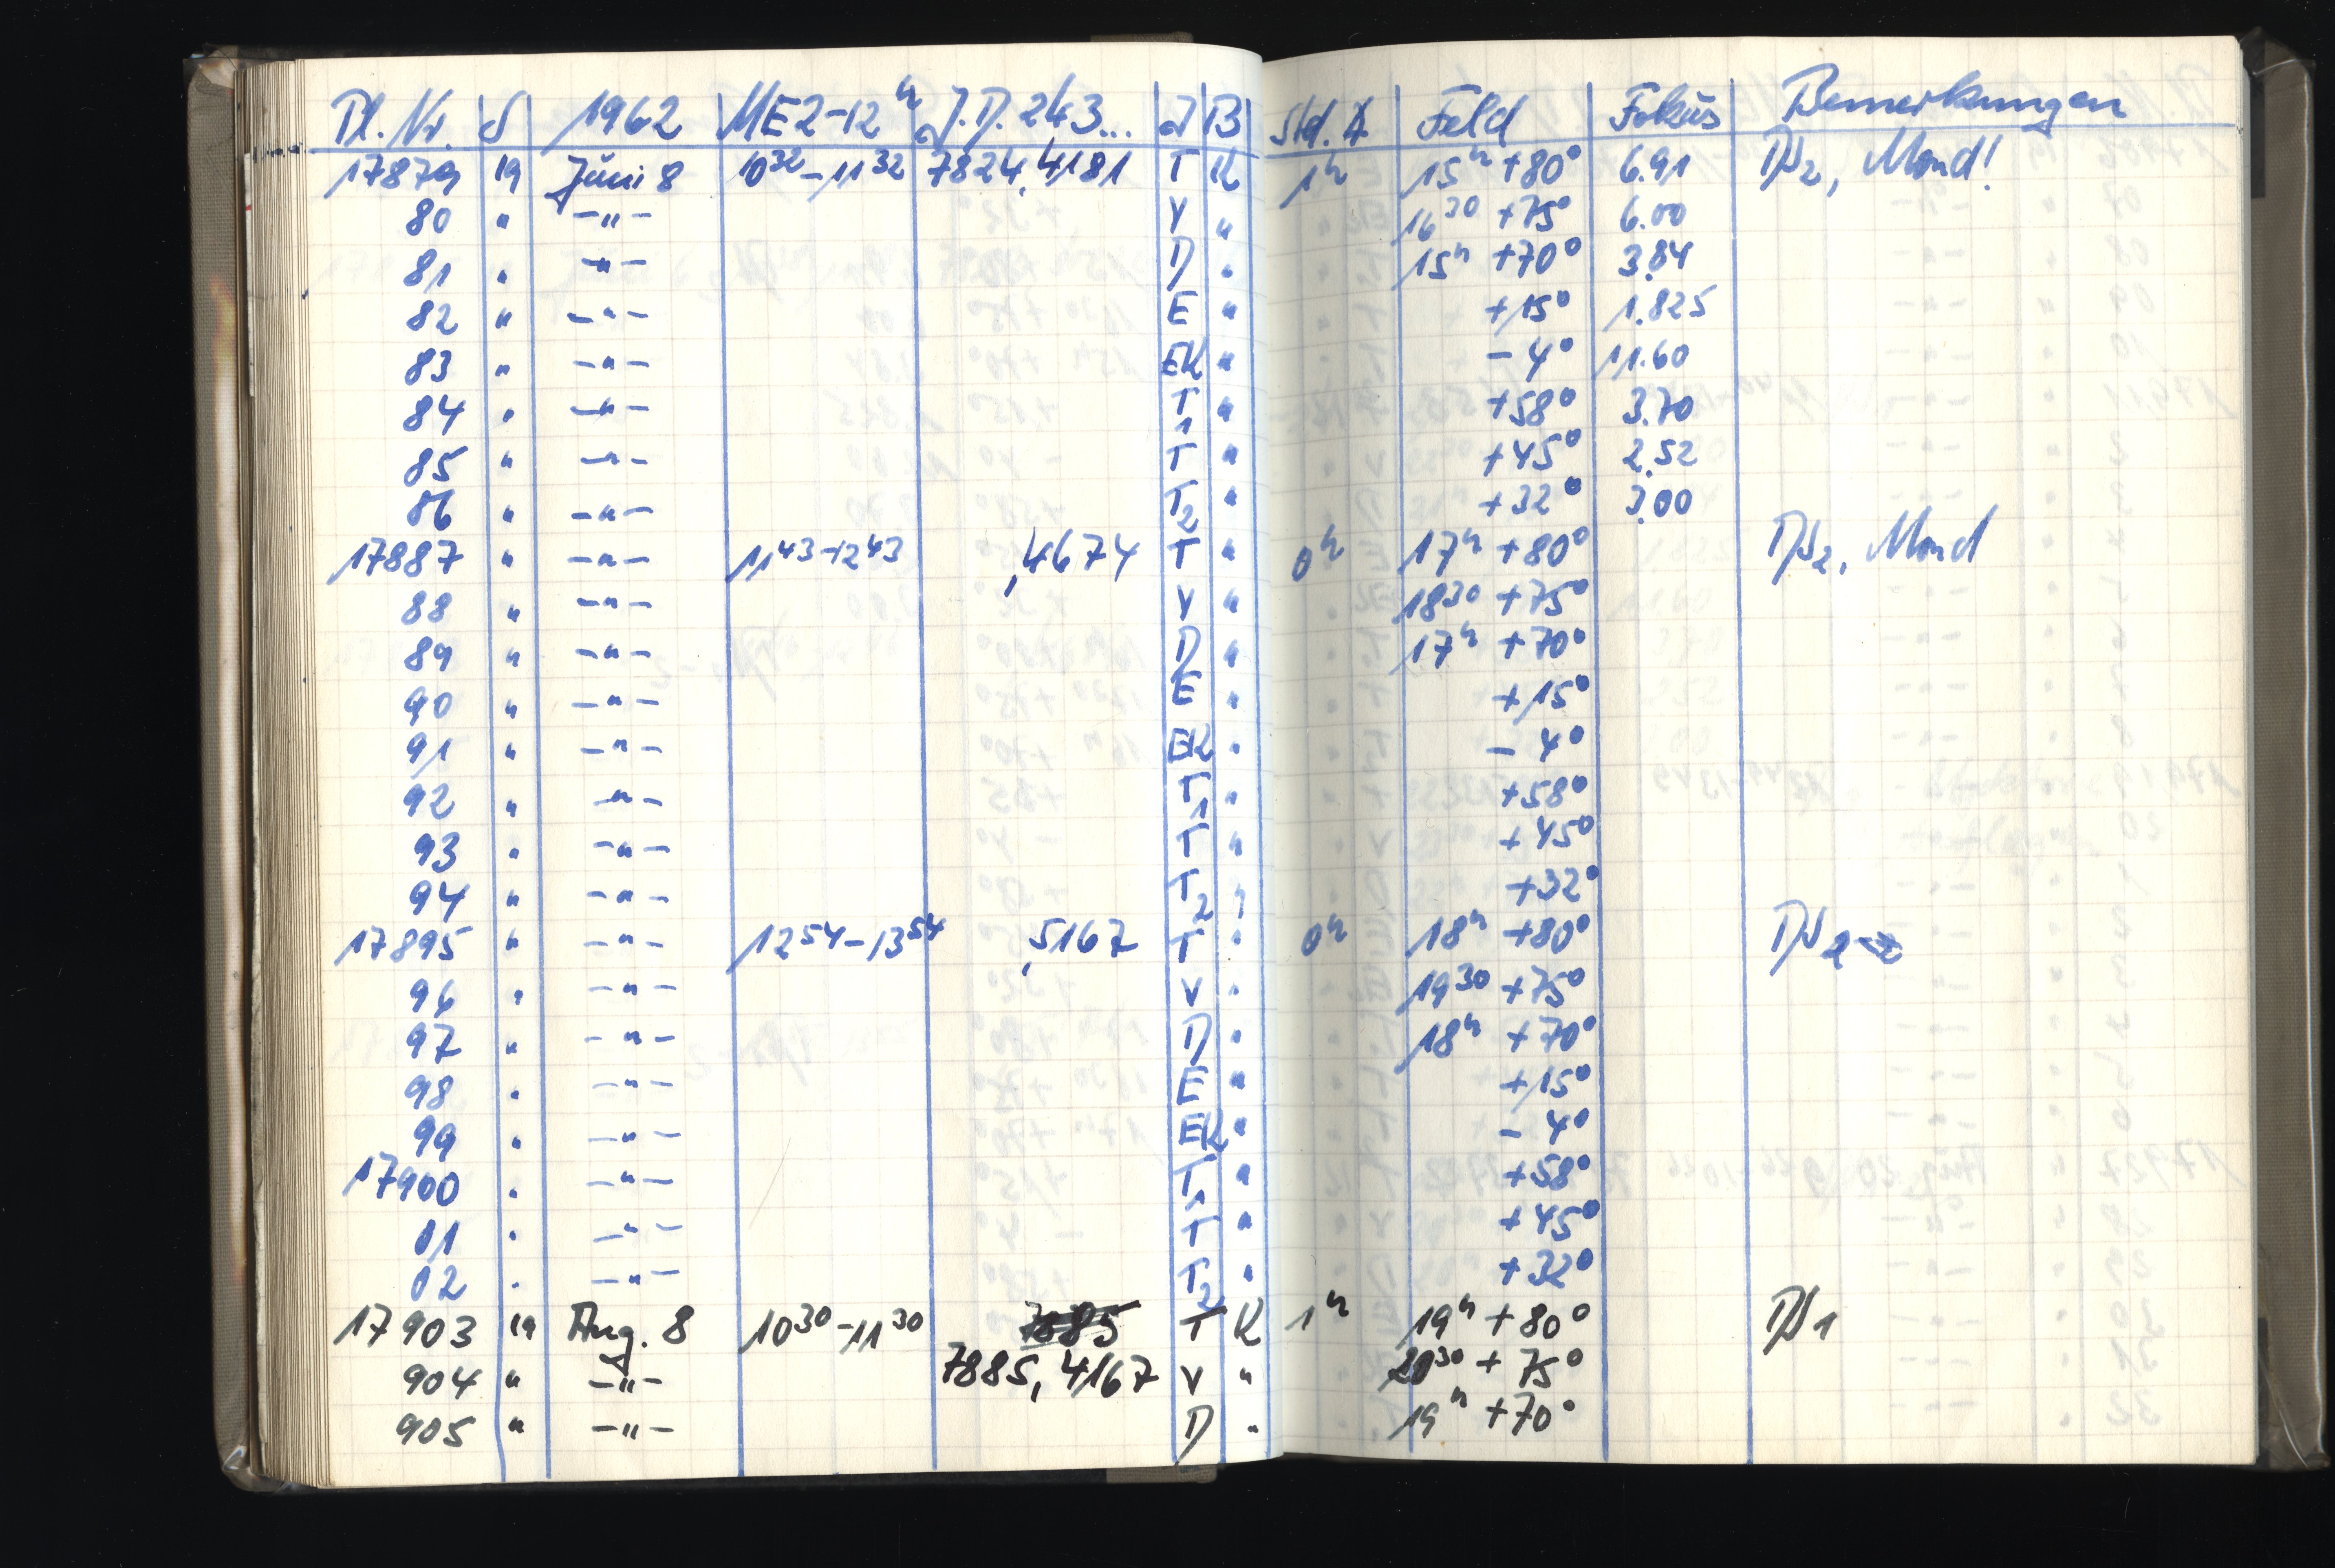 Pl. Nr. S 1962 MEZ-12ʰ J.D. 243... J B Std. ∢ Feld Fokus Bemerkungen
17879 19 Juni 8 10³²-11³² 7824,4181 T K 1ʰ 15ʰ +80° 6.91 DS₂, Mond!
80 " -"- V " 16³⁰ +75° 6.00
81 " -"- D " 15ʰ +70° 3.84
82 " -"- E " +15° 1.825
83 " -"- EK " - 4° 11.60
84 " -"- T₁ " +58° 3.70
85 " -"- T " +45° 2.52
86 " -"- T₂ " +32° 3.00
17887 " -"- 11⁴³-12⁴³ ,4674 T " 0ʰ 17ʰ +80° DS₂, Mond
88 " -"- V " 18³⁰ +75°
89 " -"- D " 17ʰ +70°
90 " -"- E " +15°
91 " -"- EK " - 4°
92 " -"- T₁ " +58°
93 " -"- T " +45°
94 " -"- T₂ " +32°
17895 " -"- 12⁵⁴-13⁵⁴ ,5167 T " 0ʰ 18ʰ +80° DS₂
96 " -"- V " 19³⁰ +75°
97 " -"- D " 18ʰ +70°
98 " -"- E " +15°
99 " -"- EK " - 4°
17900 " -"- T₁ " +58°
01 " -"- T " +45°
02 " -"- T₂ " +32°
17903 19 Aug. 8 10³⁰-11³⁰ 7885 T K 1ʰ 19ʰ +80° DS₁
904 " -"- 7885,4167 V " 20³⁰ +75°
905 " -"- D " 19ʰ +70°